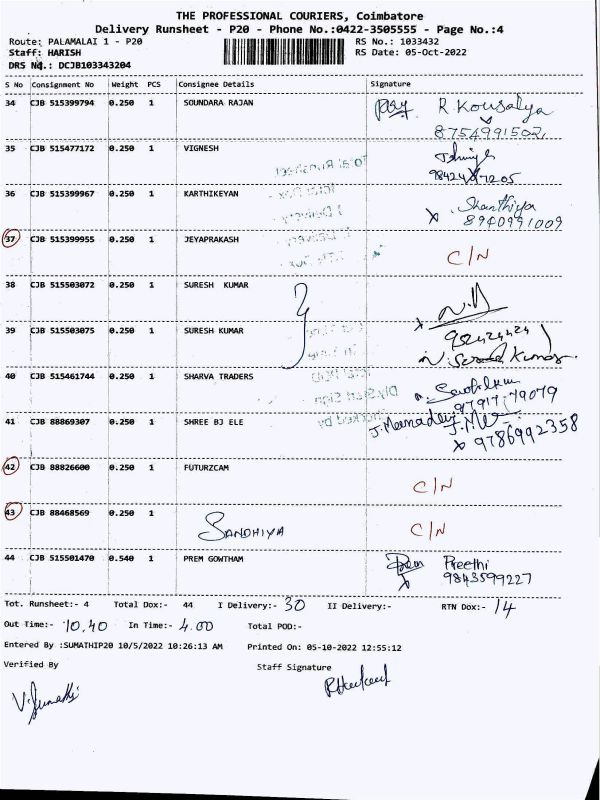 THE PROFESSIONAL COURIERS, Coimbatore
Delivery Runsheet - P20 - Phone No.:0422-3505555 - Page No.:4
Route: PALAMALAI 1 - P20 RS No.: 1033432
Staff: HARISH RS Date: 05-Oct-2022
DRS No.: DCJB103343204
S No Consignment No Weight PCS Consignee Details Signature
34 CJB 515399794 0.250 1 SOUNDARA RAJAN R Kousalya
8754991502
35 CJB 515477172 0.250 1 VIGNESH
36 CJB 515399967 0.250 1 KARTHIKEYAN Shanthiya
8940991009
37 CJB 515399955 0.250 1 JEYAPRAKASH C/N
38 CJB 515503072 0.250 1 SURESH KUMAR
39 CJB 515503075 0.250 1 SURESH KUMAR
40 CJB 515461744 0.250 1 SHARVA TRADERS
97917 79079
41 CJB 88869307 0.250 1 SHREE BJ ELE J. Meenadevi
9786992358
42 CJB 88826600 0.250 1 FUTURZCAM C/N
43 CJB 88468569 0.250 1 SANDHIYA C/N
44 CJB 515501470 0.540 1 PREM GOWTHAM Prem Preethi
9843599227
Tot. Runsheet:- 4 Total Dox:- 44 I Delivery:- 30 II Delivery:- RTN Dox:- 14
Out Time:- 10.40 In Time:- 4.00 Total POD:-
Entered By :SUMATHIP20 10/5/2022 10:26:13 AM Printed On: 05-10-2022 12:55:12
Verified By Staff Signature
V. Sumathi